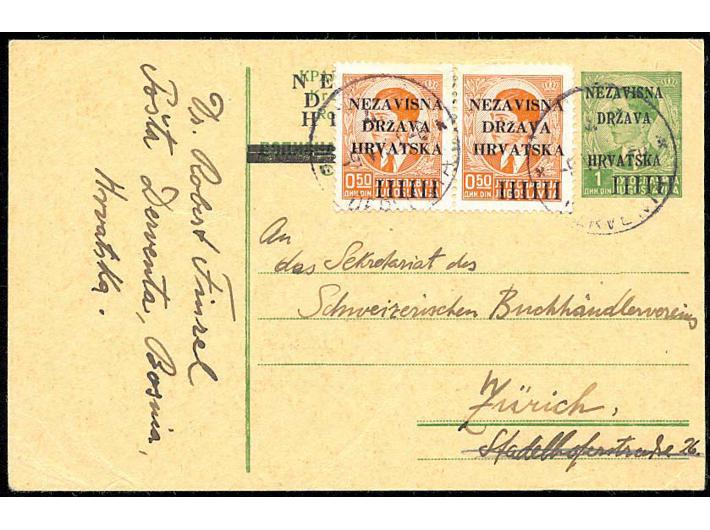 Dr. Robert Finzel
Pošta Derventa, Bosnia,
Hrvatska.
NEZAVISNA
DRŽAVA
HRVATSKA
0.50
ДИН. DIN
NEZAVISNA
DRŽAVA
HRVATSKA
0.50
ДИН. DIN
NEZAVISNA
DRŽAVA
HRVATSKA
1
ДИН. DIN
An
das Sekretariat des
Schweizerischen Buchhändlervereins
Zürich,
Stadelhoferstraße 26.